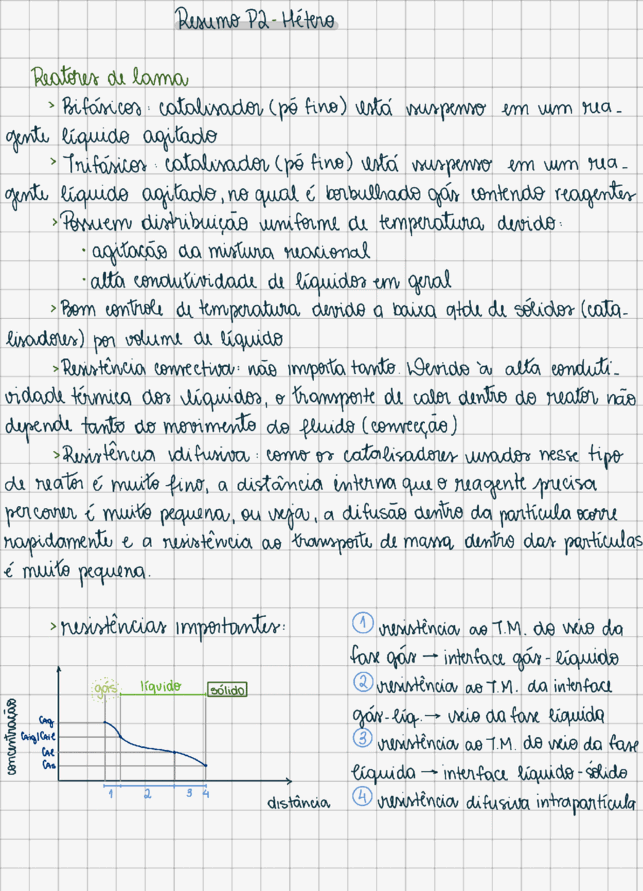 Resumo P2 - Hétero
Reatores de lama
> Bifásicos: catalisador (pó fino) está suspenso em um rea-
gente líquido agitado
> Trifásicos: catalisador (pó fino) está suspenso em um rea-
gente líquido agitado, no qual é borbulhado gás contendo reagentes
> Possuem distribuição uniforme de temperatura devido:
· agitação da mistura reacional
· alta condutividade de líquidos em geral
> Bom controle de temperatura devido a baixa qtde de sólidos (cata-
lisadores) por volume de líquido
> Resistência convectiva: não importa tanto. Devido à alta conduti-
vidade térmica dos líquidos, o transporte de calor dentro do reator não
depende tanto do movimento do fluido (convecção)
> Resistência difusiva: como os catalisadores usados nesse tipo
de reator é muito fino, a distância interna que o reagente precisa
percorrer é muito pequena, ou seja, a difusão dentro da partícula ocorre
rapidamente e a resistência ao transporte de massa dentro das partículas
é muito pequena.
> resistências importantes:
gás líquido sólido
concentração
CAg
CAig/CAie
CAe
CAs
1 2 3 4
distância
1 resistência ao T.M. do seio da
fase gás → interface gás-líquido
2 resistência ao T.M. da interface
gás-líq. → seio da fase líquida
3 resistência ao T.M. do seio da fase
líquida → interface líquido-sólido
4 resistência difusiva intrapartícula